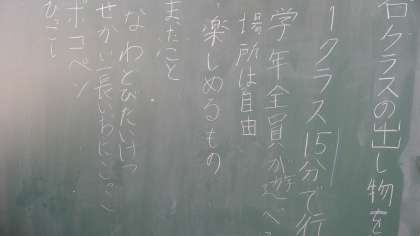 各クラスの出し物を
1クラス15分で行
学年全員が遊べ
場所は自由
楽しめるもの
まだこと
なわとびたいけつ
せかい一長いおにごっこ
ポコペン